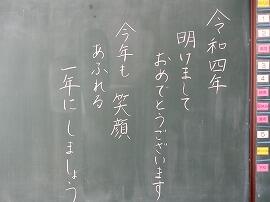 令和四年
明けまして
おめでとうございます
今年も 笑顔
あふれる
一年に しましょう